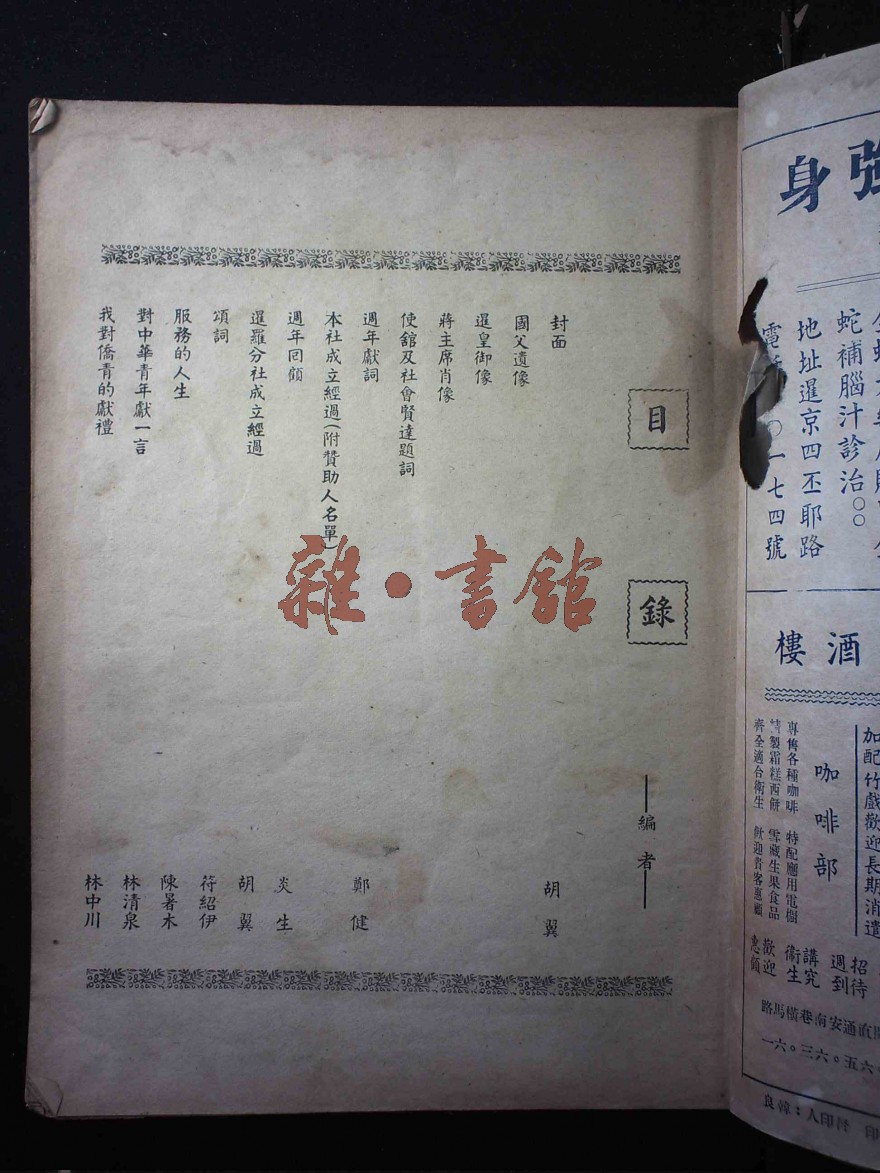 目錄
——編者——
封面 胡翼
國父遺像
暹皇御像
蔣主席肖像
使舘及社會賢達題詞
週年獻詞 鄭健
本社成立經過(附贊助人名單)
週年回顧 炎生
暹羅分社成立經過 胡翼
頌詞 符紹伊
服務的人生 陳署木
對中華青年獻一言 林清泉
我對僑青的獻禮 林中川
雜·書館
強身
蛇補腦汁診治
地址暹京四丕耶路
〇一七四號
酒樓
加配竹戲歡迎長期消遣
咖啡部
專售各種咖啡 特配應用電櫃
特製霜糕西餅 雪藏生果食品
齊全適合衛生 歡迎貴客惠顧
招待週到
講究衛生
歡迎惠顧
直通安南巷橫馬路
一六。三六。五六
督印人：韓良